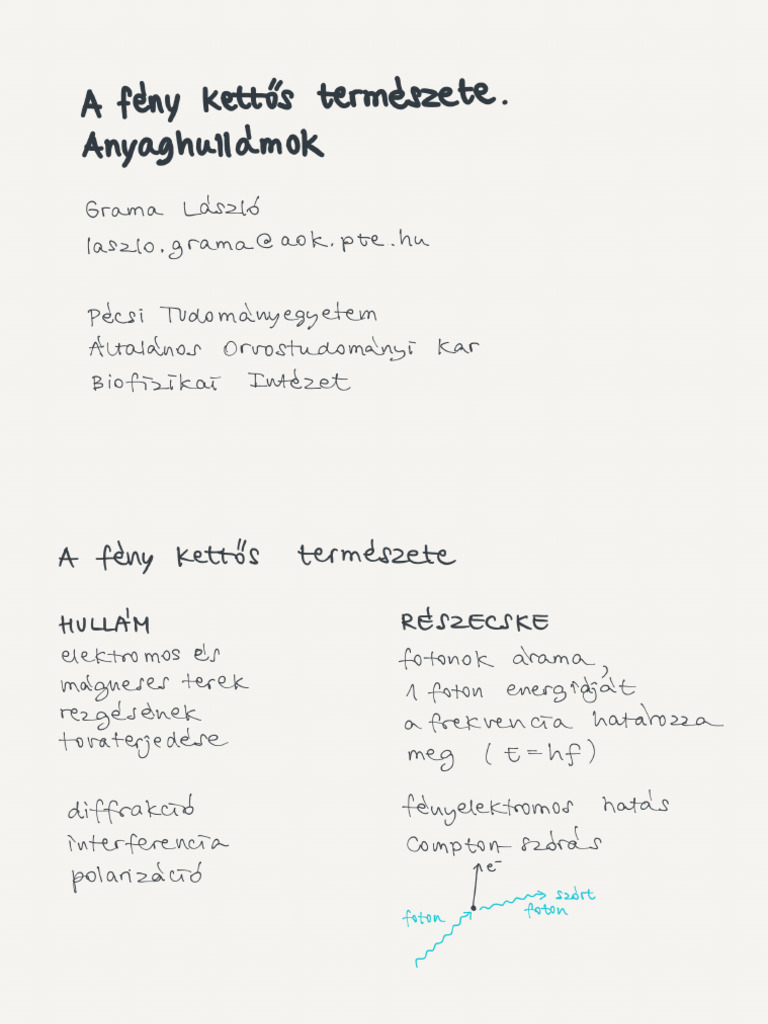 A fény kettős természete.
Anyaghullámok
Grama László
laszlo.grama@aok.pte.hu
Pécsi Tudományegyetem
Általános Orvostudományi Kar
Biofizikai Intézet
A fény kettős természete
HULLÁM
elektromos és
mágneses terek
rezgésének
tovaterjedése
diffrakció
interferencia
polarizáció
RÉSZECSKE
fotonok árama,
1 foton energiáját
a frekvencia határozza
meg (E=hf)
fényelektromos hatás
Compton-szórás
e⁻
foton
szórt
foton